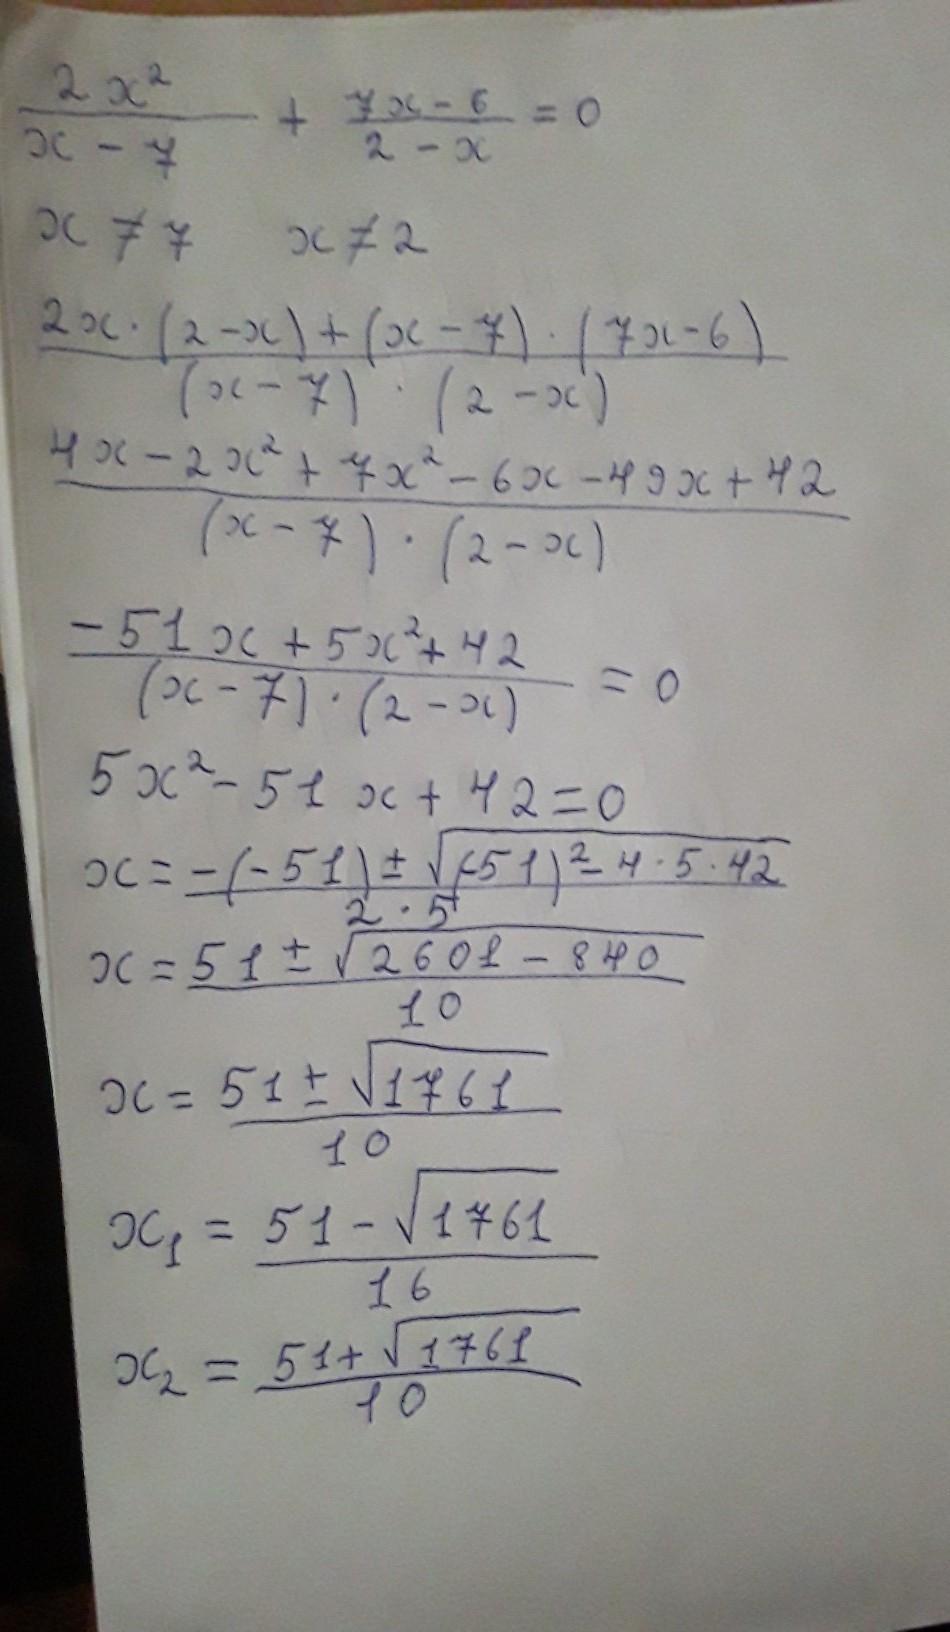 2x²/(x - 7) + (7x - 6)/(2 - x) = 0
x ≠ 7 x ≠ 2
(2x·(2-x)+(x-7)·(7x-6))/((x-7)·(2-x))
(4x-2x²+7x²-6x-49x+42)/((x-7)·(2-x))
(-51x+5x²+42)/((x-7)·(2-x)) = 0
5x²-51x+42=0
x=(-(-51)±√((-51)²-4·5·42))/(2·5)
x=(51±√(2601-840))/10
x=(51±√1761)/10
x₁=(51-√1761)/16
x₂=(51+√1761)/10